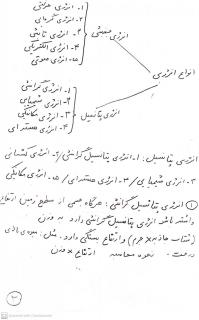 ۱- انرژی حرکتی
۲- انرژی گرمایی
۳- انرژی تابشی
۴- انرژی الکتریکی
۵- انرژی صوتی
انرژی جنبشی
انواع انرژی
۱- انرژی گرانشی
۲- شیمیایی
۳- انرژی مکانیکی
۴- انرژی هسته ای
انرژی پتانسیل
انرژی پتانسیل: ۱- انرژی پتانسیل گرانشی / ۲- انرژی کشسانی
۳- انرژی شیمیایی / ۴- انرژی هسته ای / ۵- انرژی مکانیکی
① انرژی پتانسیل گرانشی: هرگاه جسمی از سطح زمین ارتفاع
داشته باشد انرژی پتانسیل گرانشی دارد به وزن
(شتاب جاذبه × جرم) و ارتفاع بستگی دارد. مثل: میوه ی بالای
درخت نحوه محاسبه ارتفاع × وزن
CamScanner